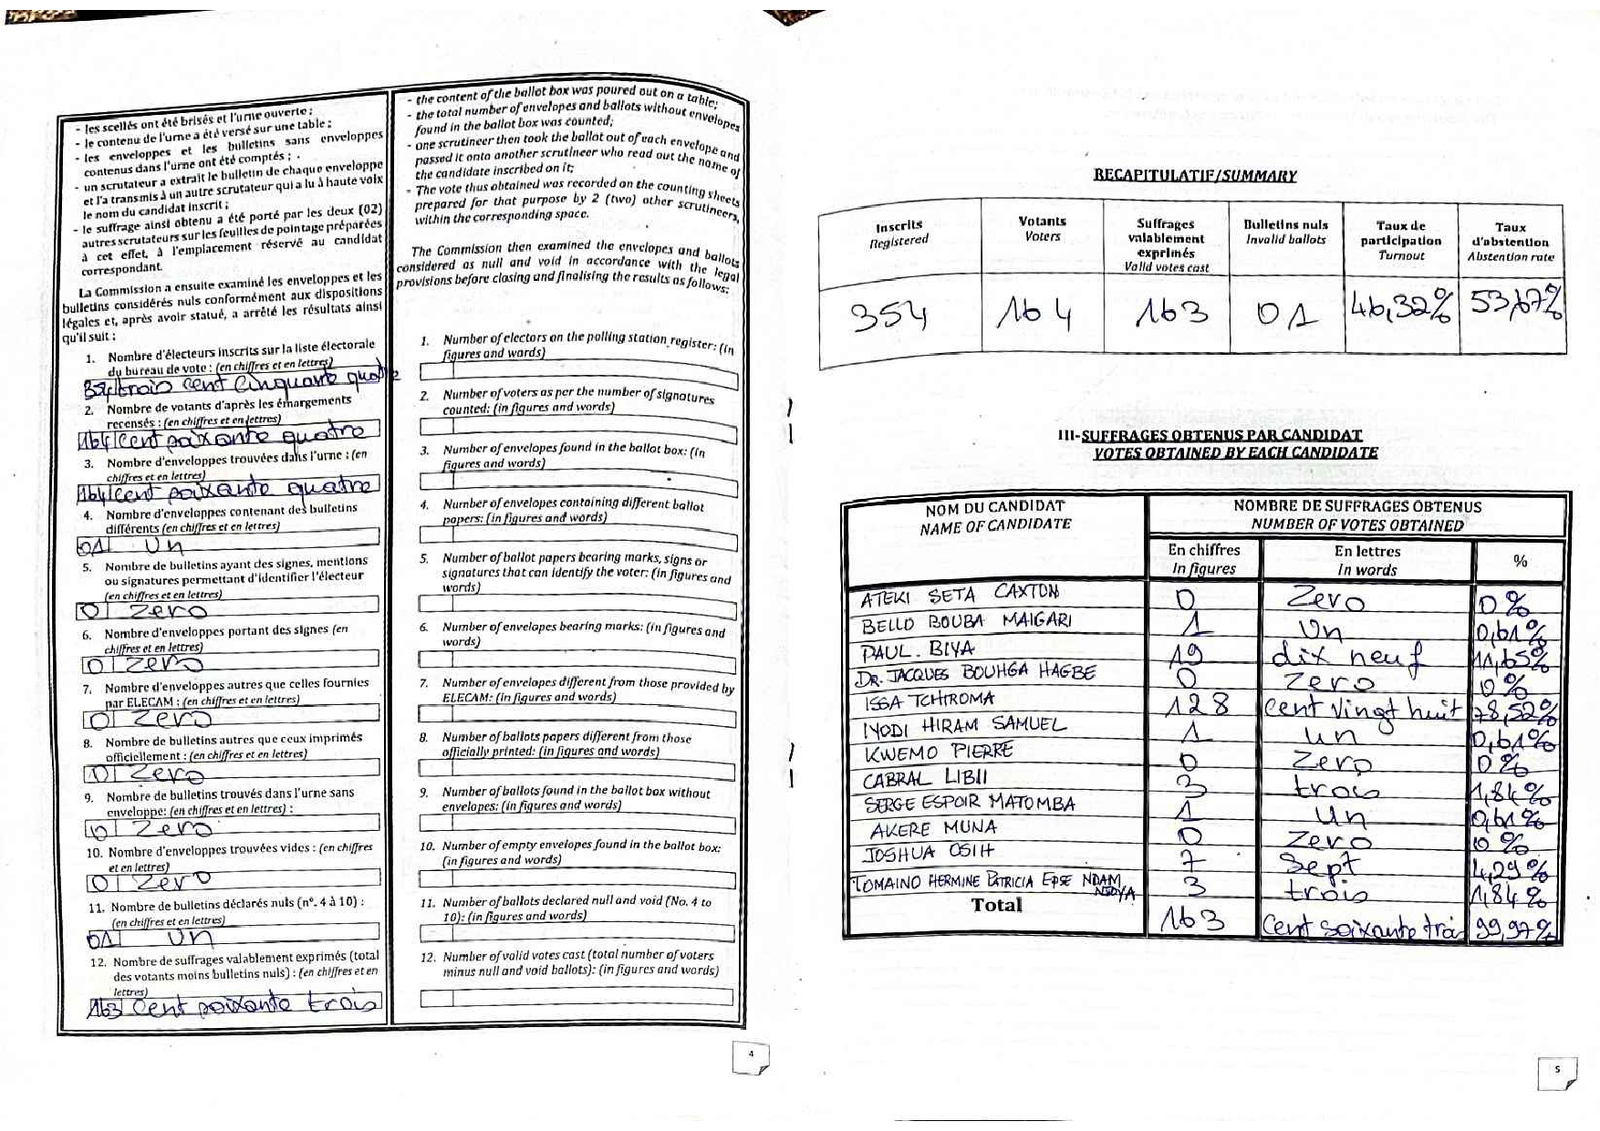 - les scellés ont été brisés et l'urne ouverte ;
- le contenu de l'urne a été versé sur une table ;
- les enveloppes et les bulletins sans enveloppes
contenus dans l'urne ont été comptés ;
- un scrutateur a extrait le bulletin de chaque enveloppe
et l'a transmis à un autre scrutateur qui a lu à haute voix
le nom du candidat inscrit ;
- le suffrage ainsi obtenu a été porté par les deux (02)
autres scrutateurs sur les feuilles de pointage préparées
à cet effet, à l'emplacement réservé au candidat
correspondant.
La Commission a ensuite examiné les enveloppes et les
bulletins considérés nuls conformément aux dispositions
légales et, après avoir statué, a arrêté les résultats ainsi
qu'il suit :
1. Nombre d'électeurs inscrits sur la liste électorale
du bureau de vote : (en chiffres et en lettres)
354 trois cent cinquante quatre
2. Nombre de votants d'après les émargements
recensés : (en chiffres et en lettres)
164 cent soixante quatre
3. Nombre d'enveloppes trouvées dans l'urne : (en
chiffres et en lettres)
164 cent soixante quatre
4. Nombre d'enveloppes contenant des bulletins
différents (en chiffres et en lettres)
01 un
5. Nombre de bulletins ayant des signes, mentions
ou signatures permettant d'identifier l'électeur
(en chiffres et en lettres)
0 zero
6. Nombre d'enveloppes portant des signes (en
chiffres et en lettres)
0 zero
7. Nombre d'enveloppes autres que celles fournies
par ELECAM : (en chiffres et en lettres)
0 zero
8. Nombre de bulletins autres que ceux imprimés
officiellement : (en chiffres et en lettres)
0 zero
9. Nombre de bulletins trouvés dans l'urne sans
enveloppe: (en chiffres et en lettres) :
0 zero
10. Nombre d'enveloppes trouvées vides : (en chiffres
et en lettres)
0 zero
11. Nombre de bulletins déclarés nuls (n°. 4 à 10) :
(en chiffres et en lettres)
01 un
12. Nombre de suffrages valablement exprimés (total
des votants moins bulletins nuls) : (en chiffres et en
lettres)
163 cent soixante trois
- the content of the ballot box was poured out on a table;
- the total number of envelopes and ballots without envelopes
found in the ballot box was counted;
- one scrutineer then took the ballot out of each envelope and
passed it onto another scrutineer who read out the name of
the candidate inscribed on it;
- The vote thus obtained was recorded on the counting sheets
prepared for that purpose by 2 (two) other scrutineers,
within the corresponding space.
The Commission then examined the envelopes and ballots
considered as null and void in accordance with the legal
provisions before closing and finalising the results as follows:
1. Number of electors on the polling station register: (in
figures and words)
2. Number of voters as per the number of signatures
counted: (in figures and words)
3. Number of envelopes found in the ballot box: (in
figures and words)
4. Number of envelopes containing different ballot
papers: (in figures and words)
5. Number of ballot papers bearing marks, signs or
signatures that can identify the voter: (in figures and
words)
6. Number of envelopes bearing marks: (in figures and
words)
7. Number of envelopes different from those provided by
ELECAM: (in figures and words)
8. Number of ballots papers different from those
officially printed: (in figures and words)
9. Number of ballots found in the ballot box without
envelopes: (in figures and words)
10. Number of empty envelopes found in the ballot box:
(in figures and words)
11. Number of ballots declared null and void (No. 4 to
10): (in figures and words)
12. Number of valid votes cast (total number of voters
minus null and void ballots): (in figures and words)
4
RECAPITULATIF/SUMMARY
Inscrits Registered
Votants Voters
Suffrages valablement exprimés Valid votes cast
Bulletins nuls Invalid ballots
Taux de participation Turnout
Taux d'abstention Abstention rate
354 164 163 01 46,32% 53,67%
III-SUFFRAGES OBTENUS PAR CANDIDAT
VOTES OBTAINED BY EACH CANDIDATE
NOM DU CANDIDAT NOMBRE DE SUFFRAGES OBTENUS
NAME OF CANDIDATE NUMBER OF VOTES OBTAINED
En chiffres En lettres %
In figures In words
ATEKI SETA CAXTON 0 Zero 0%
BELLO BOUBA MAIGARI 1 Un 0,61%
PAUL. BIYA 19 dix neuf 11,65%
DR. JACQUES BOUHGA HAGBE 0 Zero 0%
ISSA TCHIROMA 128 cent vingt huit 78,52%
IYODI HIRAM SAMUEL 1 un 0,61%
KWEMO PIERRE 0 Zero 0%
CABRAL LIBII 3 trois 1,84%
SERGE ESPOIR MATOMBA 1 Un 0,61%
AKERE MUNA 0 Zero 0%
JOSHUA OSIH 7 Sept 4,29%
TOMAINO HERMINE PATRICIA EPSE NDAM NJOYA 3 trois 1,84%
Total 163 Cent soixante trois 99,97%
5